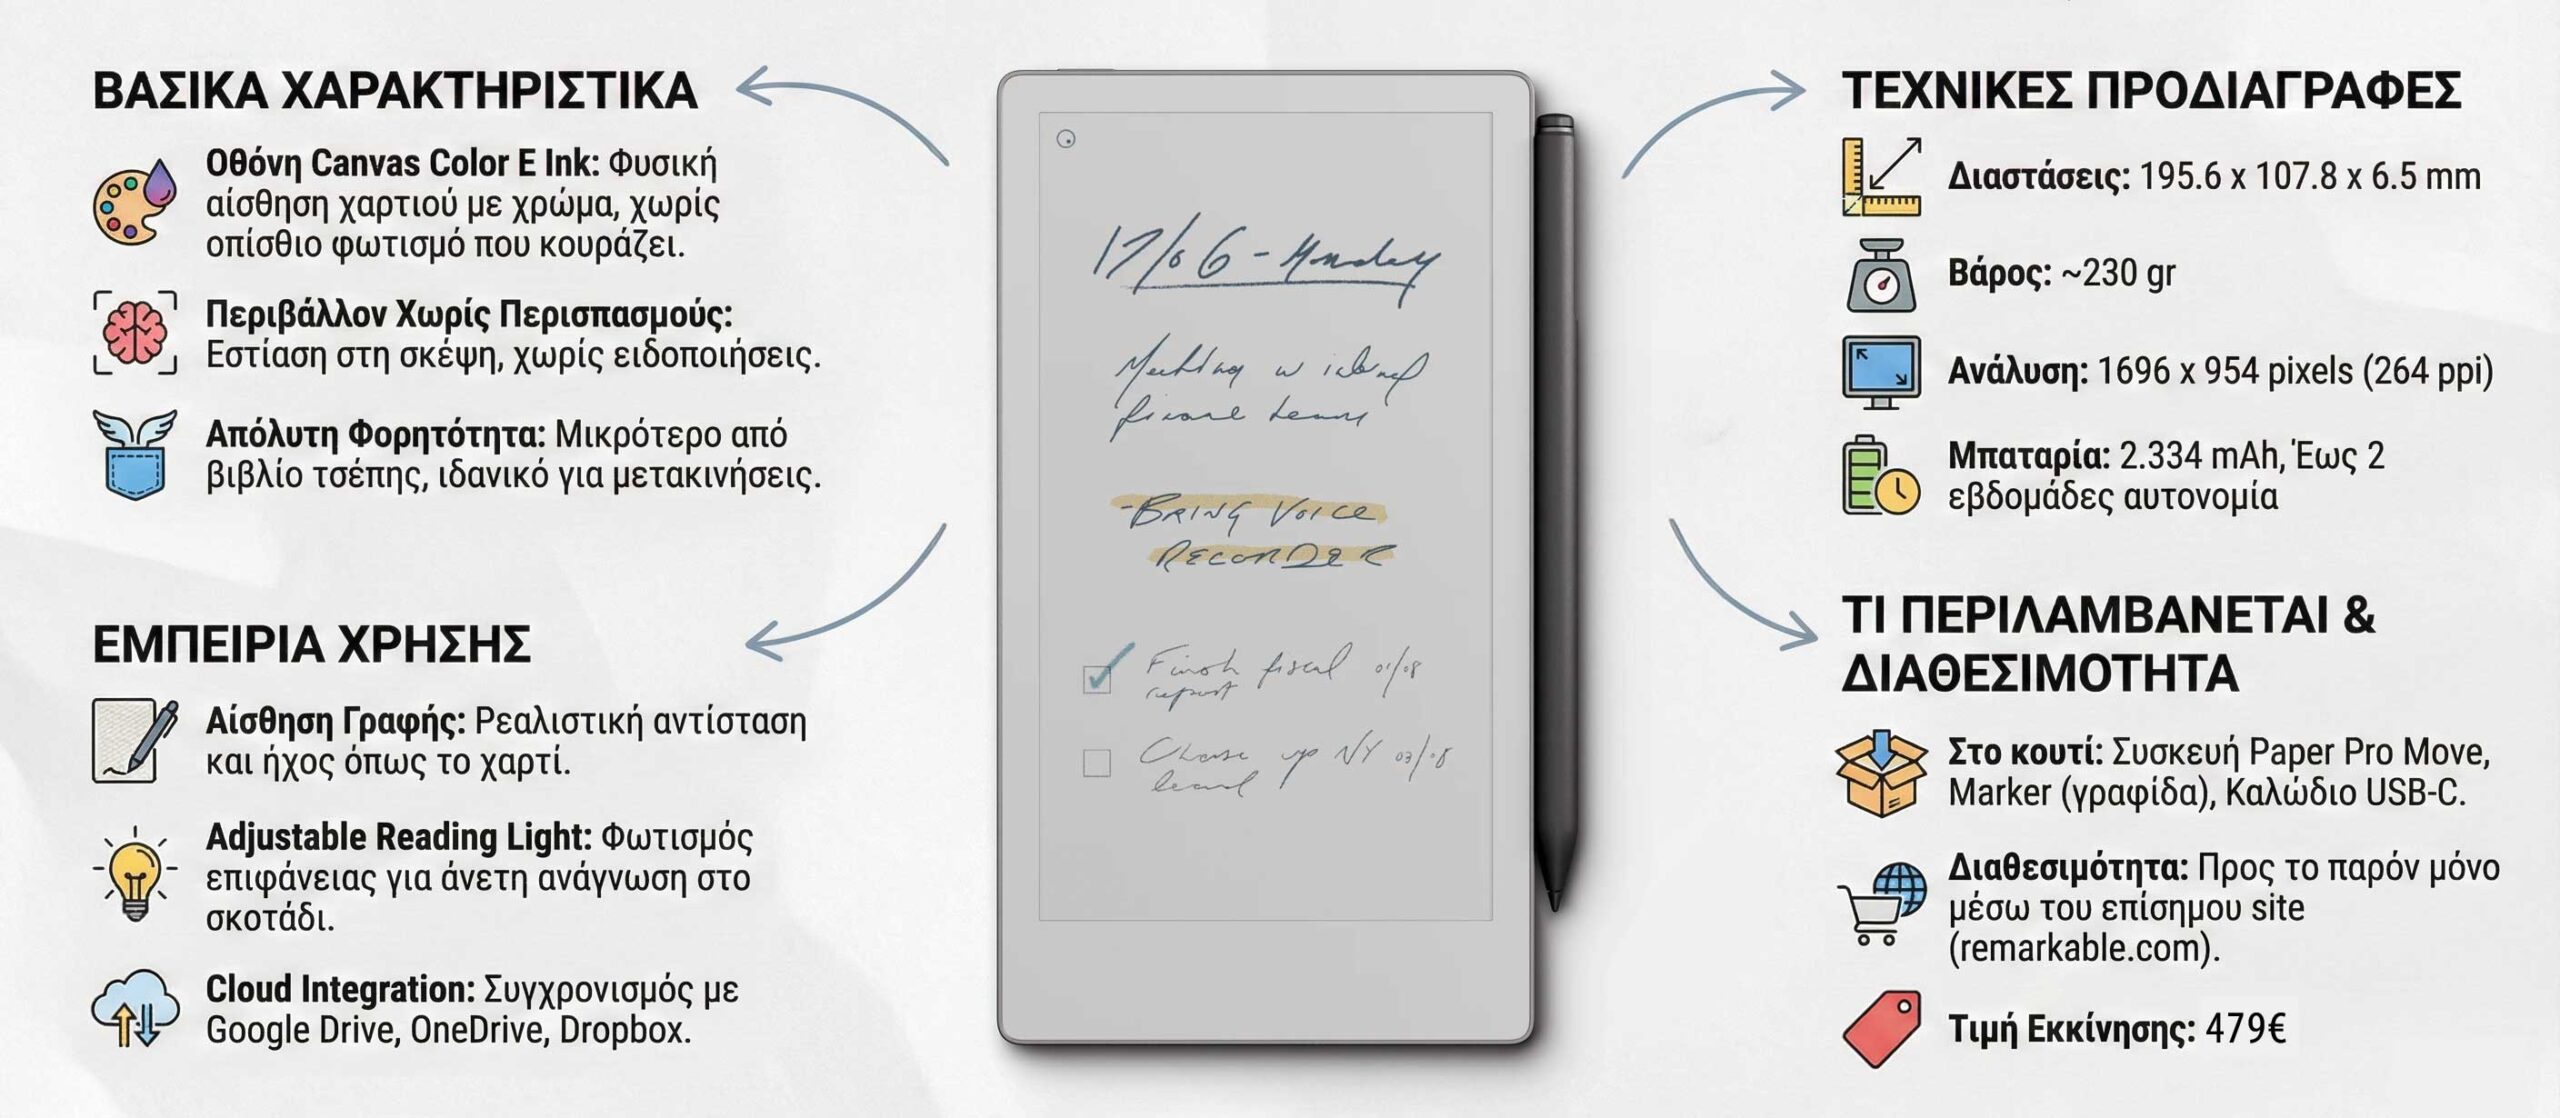 ΒΑΣΙΚΑ ΧΑΡΑΚΤΗΡΙΣΤΙΚΑ
Οθόνη Canvas Color E Ink: Φυσική
αίσθηση χαρτιού με χρώμα, χωρίς
οπίσθιο φωτισμό που κουράζει.
Περιβάλλον Χωρίς Περισπασμούς:
Εστίαση στη σκέψη, χωρίς ειδοποιήσεις.
Απόλυτη Φορητότητα: Μικρότερο από
βιβλίο τσέπης, ιδανικό για μετακινήσεις.
ΕΜΠΕΙΡΙΑ ΧΡΗΣΗΣ
Αίσθηση Γραφής: Ρεαλιστική αντίσταση
και ήχος όπως το χαρτί.
Adjustable Reading Light: Φωτισμός
επιφάνειας για άνετη ανάγνωση στο
σκοτάδι.
Cloud Integration: Συγχρονισμός με
Google Drive, OneDrive, Dropbox.
17/06 - Monday
Meeting w
team
-BRING VOICE
RECORDER
Finish fiscal 01/08
report
up NY 03/08
ΤΕΧΝΙΚΕΣ ΠΡΟΔΙΑΓΡΑΦΕΣ
Διαστάσεις: 195.6 x 107.8 x 6.5 mm
Βάρος: ~230 gr
Ανάλυση: 1696 x 954 pixels (264 ppi)
Μπαταρία: 2.334 mAh, Έως 2
εβδομάδες αυτονομία
ΤΙ ΠΕΡΙΛΑΜΒΑΝΕΤΑΙ &
ΔΙΑΘΕΣΙΜΟΤΗΤΑ
Στο κουτί: Συσκευή Paper Pro Move,
Marker (γραφίδα), Καλώδιο USB-C.
Διαθεσιμότητα: Προς το παρόν μόνο
μέσω του επίσημου site
(remarkable.com).
Τιμή Εκκίνησης: 479€